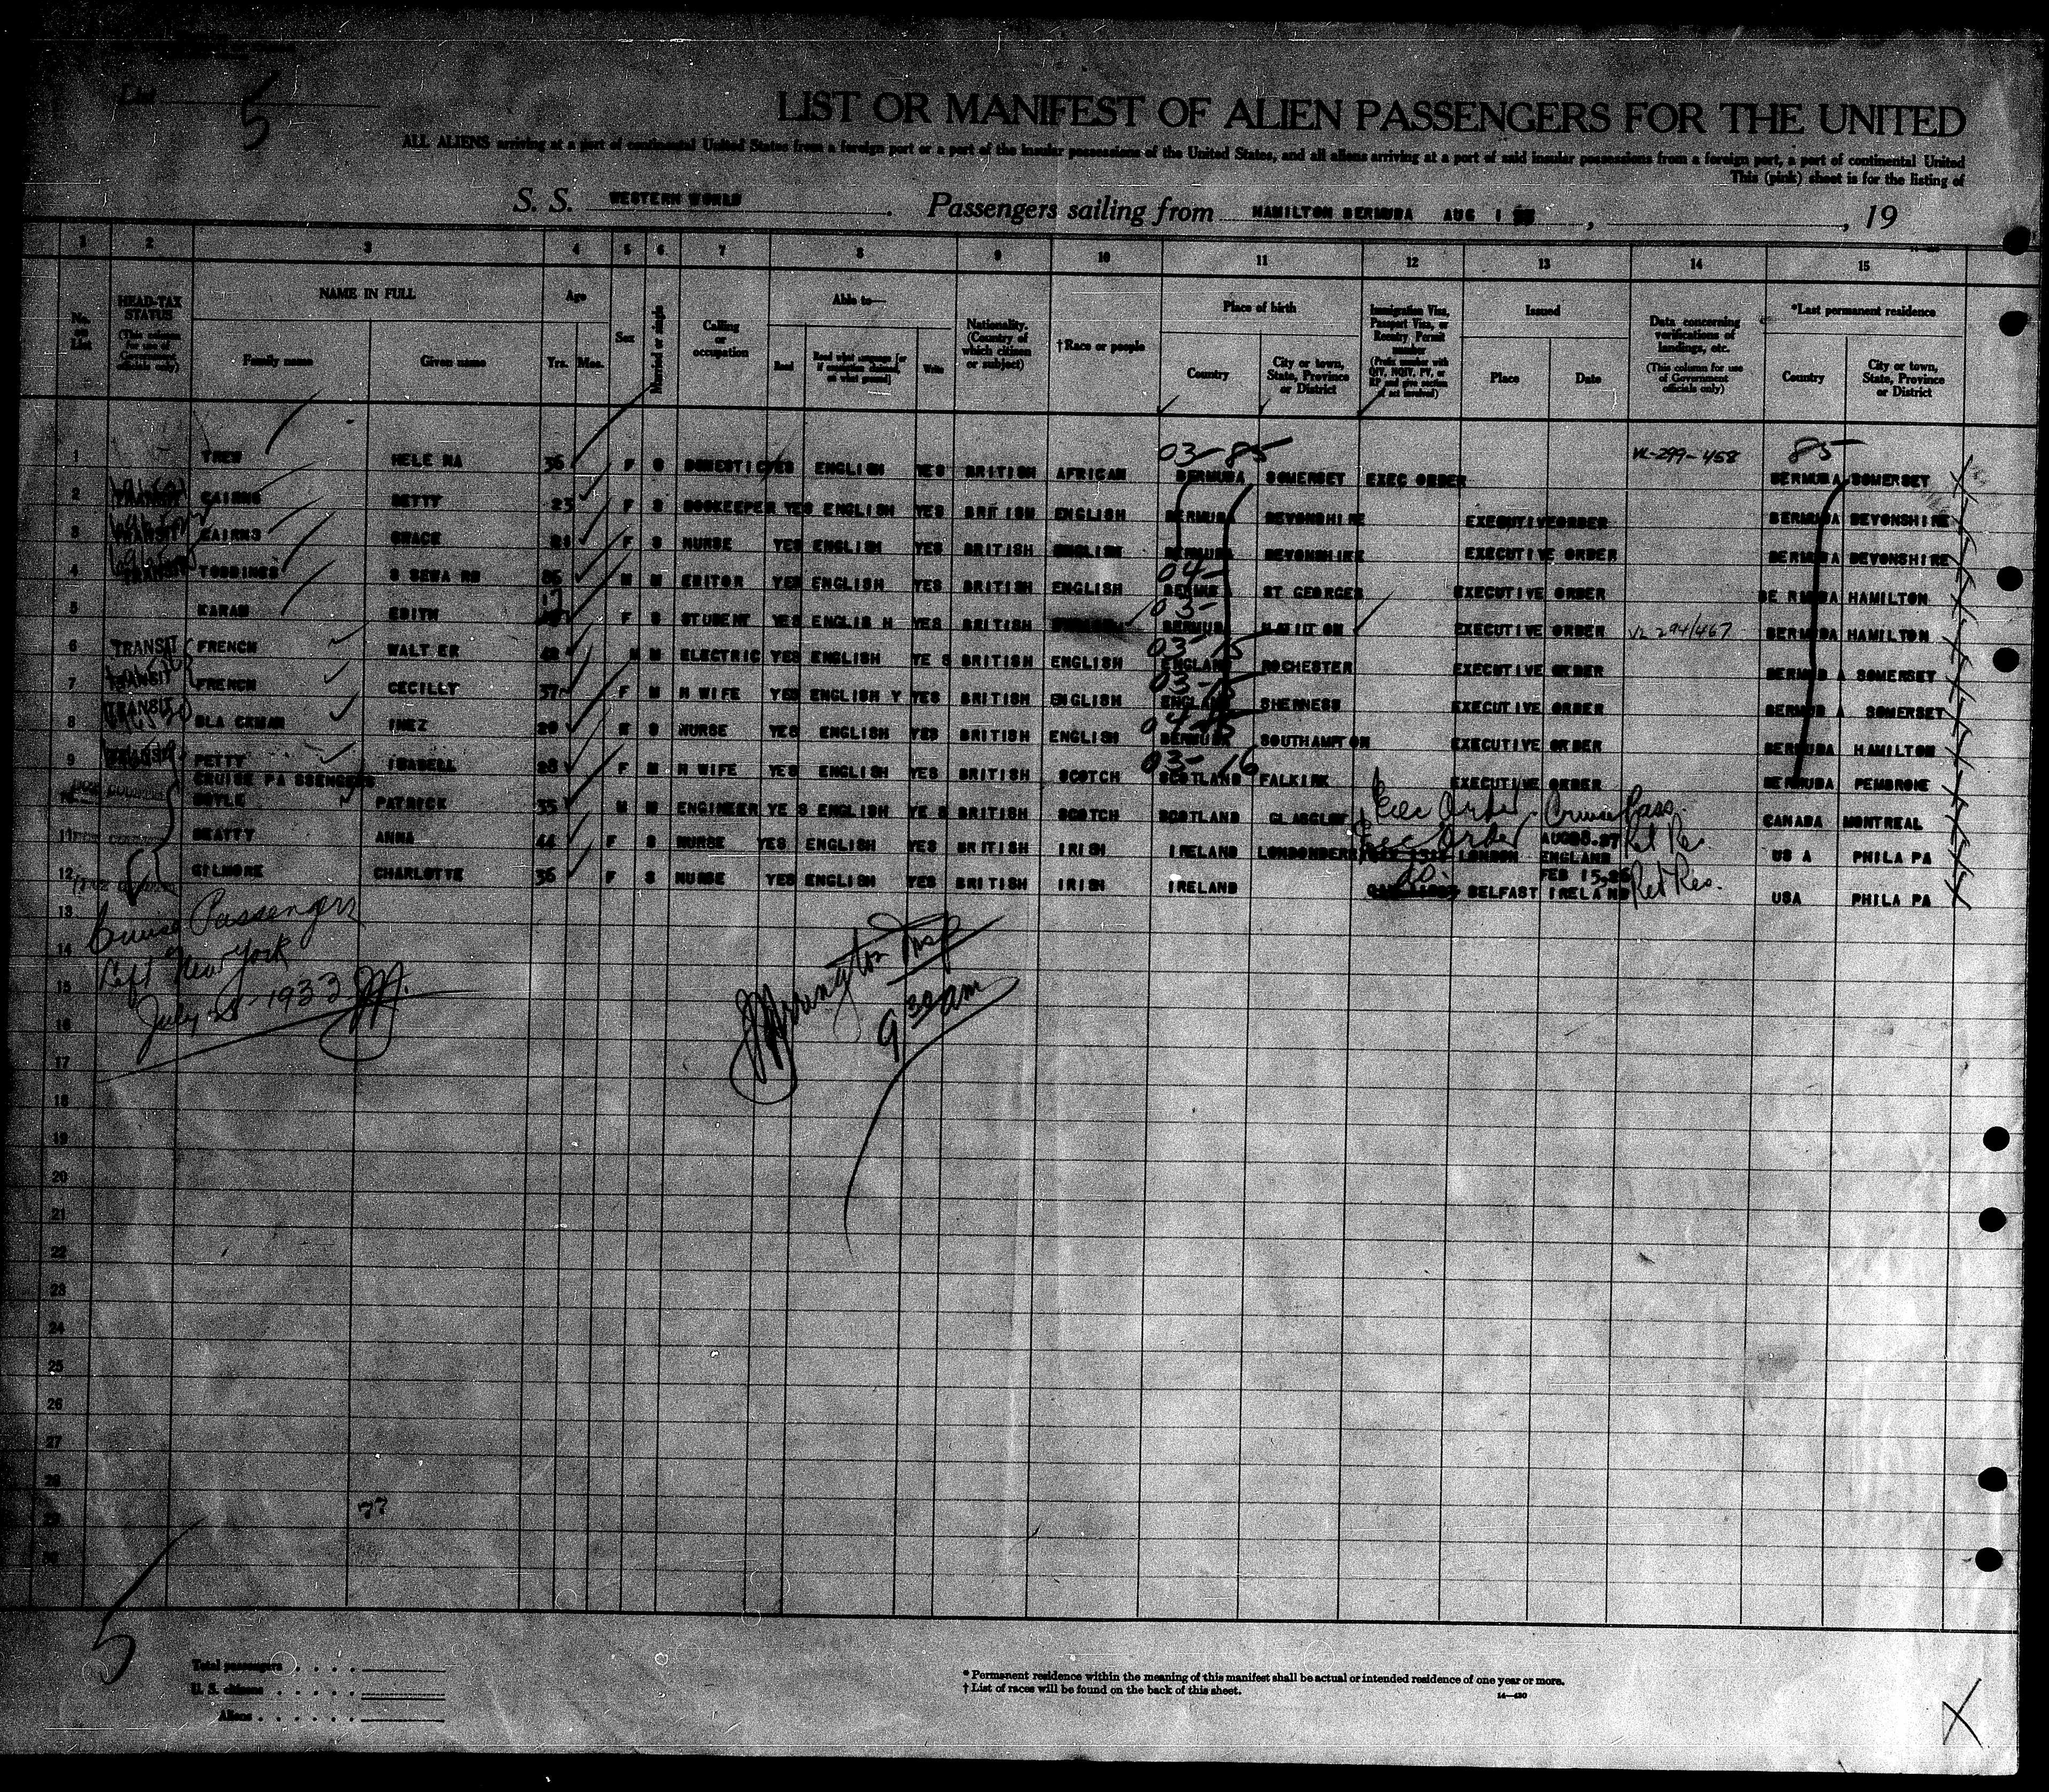 List 5
LIST OR MANIFEST OF ALIEN PASSENGERS FOR THE UNITED
ALL ALIENS arriving at a port of continental United States from a foreign port or a port of the insular possessions of the United States, and all aliens arriving at a port of said insular possessions from a foreign port, a port of continental United
This (pink) sheet is for the listing of
S. S. WESTERN WORLD . Passengers sailing from HAMILTON BERMUDA AUG 1 , , 19
1 2 3 4 5 6 7 8 9 10 11 12 13 14 15
No. on List
HEAD-TAX STATUS (This column for use of Government officials only)
NAME IN FULL Family name Given name
Age Yrs. Mos.
Sex
Married or single
Calling or occupation
Able to— Read Read what language [or if exemption claimed, on what ground] Write
Nationality. (Country of which citizen or subject)
†Race or people
Place of birth Country City or town, State, Province or District
Immigration Visa, Passport Visa, or Reentry Permit number (Prefix number with QIV, NQIV, PV, or RP and give section of act involved)
Issued Place Date
Data concerning verifications of landings, etc. (This column for use of Government officials only)
*Last permanent residence Country City or town, State, Province or District
03-85 VL-299-458 85
1 TREW HELE NA 36 F S DOMESTIC YES ENGLISH YES BRITISH AFRICAN BERMUDA SOMERSET EXEC ORDER BERMUDA SOMERSET
2 TRANSIT CAIRNS BETTY 23 F S BOOKEEPER YES ENGLISH YES BRITISH ENGLISH BERMUDA DEVONSHIRE EXECUTIVE ORDER BERMUDA DEVONSHIRE
3 TRANSIT CAIRNS GRACE 21 F S NURSE YES ENGLISH YES BRITISH ENGLISH BERMUDA DEVONSHIRE EXECUTIVE ORDER BERMUDA DEVONSHIRE
4 TRANSIT TODDINGS S SEWA RD 36 M M EDITOR YES ENGLISH YES BRITISH ENGLISH 04- BERMUDA ST GEORGES EXECUTIVE ORDER BE RMUDA HAMILTON
5 KARAM EDITH 17 F S STUDENT YES ENGLIS H YES BRITISH 03- BERMUDA HAMILTON EXECUTIVE ORDER VL 294/467 BERMUDA HAMILTON
6 TRANSIT FRENCH WALT ER 42 M M ELECTRIC YES ENGLISH YE S BRITISH ENGLISH 03-15 ENGLAND ROCHESTER EXECUTIVE ORDER BERMUD A SOMERSET
7 TRANSIT FRENCH CECILLY 37 F M H WIFE YES ENGLISH Y YES BRITISH ENGLISH 03-15 ENGLAND SHERNESS EXECUTIVE ORDER BERMUD A SOMERSET
8 TRANSIT BLA CKMAN INEZ 20 F S NURSE YES ENGLISH YES BRITISH ENGLISH 04-85 BERMUDA SOUTHAMPTON EXECUTIVE ORDER BERMUDA HAMILTON
9 TRANSIT PETTY ISABELL 28 F M H WIFE YES ENGLISH YES BRITISH SCOTCH 03-16 SCOTLAND FALKIRK EXECUTIVE ORDER BERMUDA PEMBROKE
CRUISE PA SSENGERS
10 DOYLE PATRICK 35 M M ENGINEER YE S ENGLISH YE S BRITISH SCOTCH SCOTLAND GLASGLOW Exec Order Cruise Pass. CANADA MONTREAL
11 BEATTY ANNA 44 F S NURSE YES ENGLISH YES BRITISH IRISH IRELAND LONDONDERR Exec Order LONDON ENGLAND AUG26.27 Ret Res. US A PHILA PA
12 GILMORE CHARLOTTE 36 F S NURSE YES ENGLISH YES BRITISH IRISH IRELAND do. BELFAST IRELAND FEB 15,26 Ret Res. USA PHILA PA
13
Cruise Passengers
14
Left New York
15
July 25-1933
Insp
9 30 am
16
17
18
19
20
21
22
23
24
25
26
27
28
29
30
77
5
Total passengers . . . .
U. S. citizens . . . . .
Aliens . . . . . .
* Permanent residence within the meaning of this manifest shall be actual or intended residence of one year or more.
† List of races will be found on the back of this sheet.
14—430
X